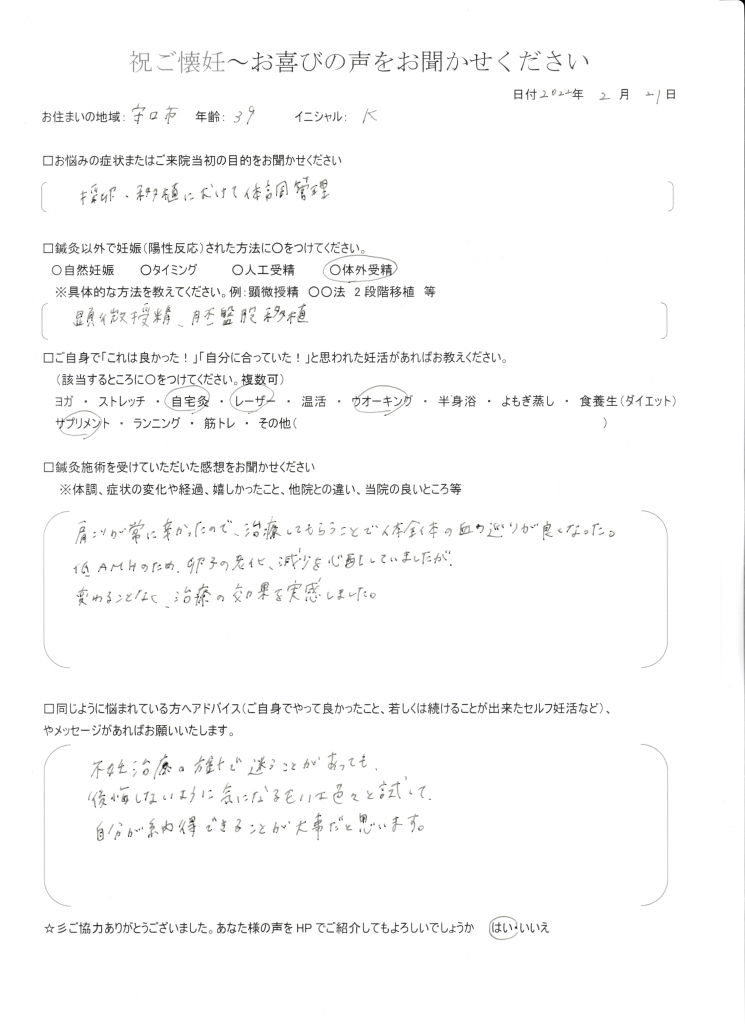 祝ご懐妊～お喜びの声をお聞かせください
日付2022年 2月 21日
お住まいの地域: 守口市 年齢: 39 イニシャル: K
□お悩みの症状またはご来院当初の目的をお聞かせください
採卵・移植にむけて体調管理
□鍼灸以外で妊娠(陽性反応)された方法に○をつけてください。
○自然妊娠 ○タイミング ○人工受精 ○体外受精
※具体的な方法を教えてください。例:顕微授精 〇〇法 2段階移植 等
顕微授精、胚盤胞移植
□ご自身で「これは良かった!」「自分に合っていた!」と思われた妊活があればお教えください。
(該当するところに○をつけてください。複数可)
ヨガ ・ ストレッチ ・ 自宅灸 ・ レーザー ・ 温活 ・ ウオーキング ・ 半身浴 ・ よもぎ蒸し ・ 食養生(ダイエット)
サプリメント ・ ランニング ・ 筋トレ ・ その他( )
□鍼灸施術を受けていただいた感想をお聞かせください
※体調、症状の変化や経過、嬉しかったこと、他院との違い、当院の良いところ等
肩こりが常に辛かったので、治療してもらうことで体全体の血の巡りが良くなった。
低AMHのため、卵子の老化、減少を心配していましたが、
変わることなく、治療の効果を実感しました。
□同じように悩まれている方へアドバイス(ご自身でやって良かったこと、若しくは続けることが出来たセルフ妊活など)、
やメッセージがあればお願いいたします。
不妊治療の雑トで迷うことがあっても、
後悔しないように気になるモノは色々と試して、
自分が納得できることが大事だと思います。
☆彡ご協力ありがとうございました。あなた様の声をHPでご紹介してもよろしいでしょうか はい・いいえ